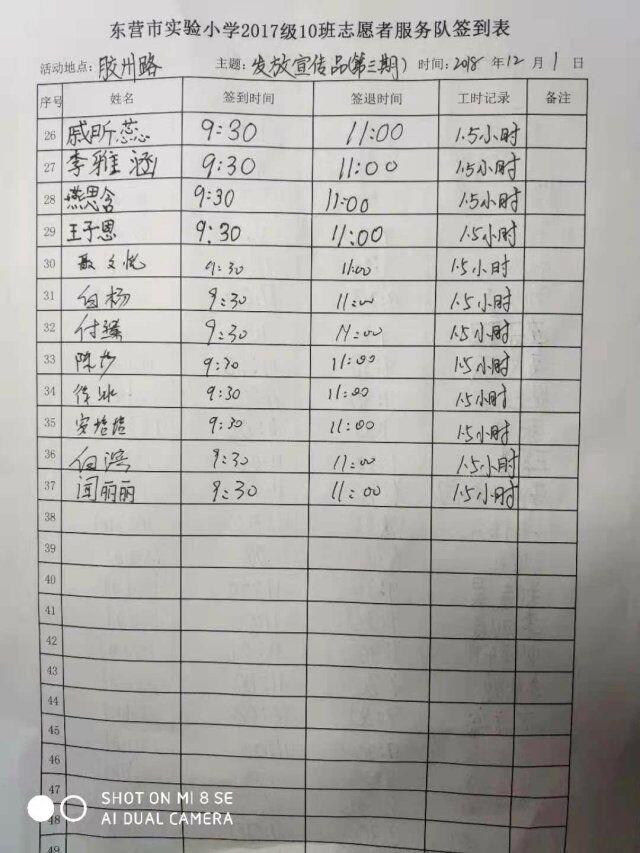 东营市实验小学2017级10班志愿者服务队签到表
活动地点：胶州路 主题：发放宣传品(第三期) 时间：2018年12月1日
序号 姓名 签到时间 签退时间 工时记录 备注
26 戚昕蕊 9:30 11:00 1.5小时
27 李雅涵 9:30 11:00 1.5小时
28 燕思含 9:30 11:00 1.5小时
29 王子恩 9:30 11:00 1.5小时
30 聂文悦 9:30 11:00 1.5小时
31 白杨 9:30 11:00 1.5小时
32 付臻 9:30 11:00 1.5小时
33 陈 9:30 11:00 1.5小时
34 徐冰 9:30 11:00 1.5小时
35 安培培 9:30 11:00 1.5小时
36 白 9:30 11:00 1.5小时
37 闫丽丽 9:30 11:00 1.5小时
38
39
40
41
42
43
44
45
46
47
48
49
SHOT ON MI 8 SE
AI DUAL CAMERA